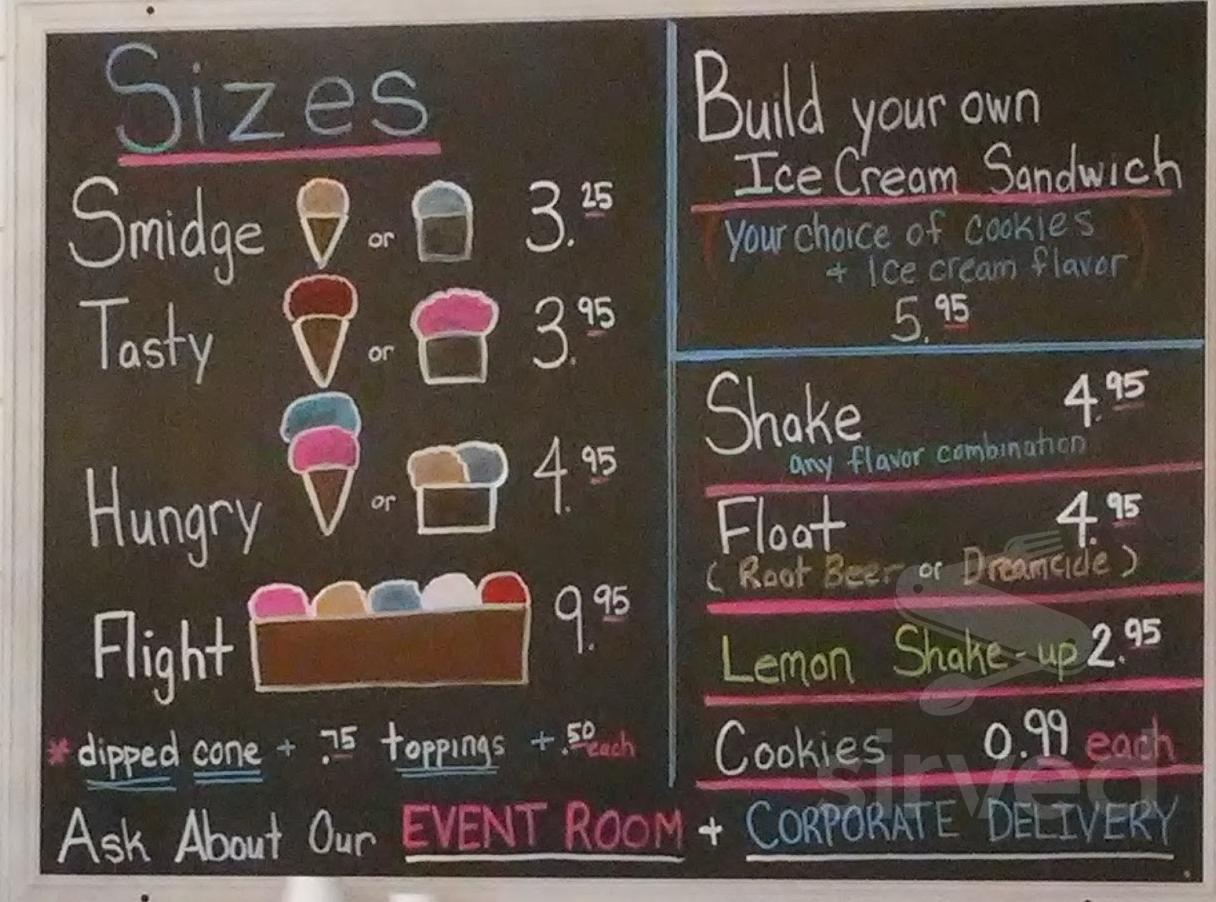 Sizes
Smidge or 3.25
Tasty or 3.95
Hungry or 4.95
Flight 9.95
* dipped cone + .75 toppings + .50 each
Build your own
Ice Cream Sandwich
(your choice of cookies
+ Ice cream flavor)
5.95
Shake 4.95
any flavor combination
Float 4.95
(Root Beer or Dreamcicle)
Lemon Shake-up 2.95
Cookies 0.99 each
Ask About Our EVENT ROOM + CORPORATE DELIVERY
sirved